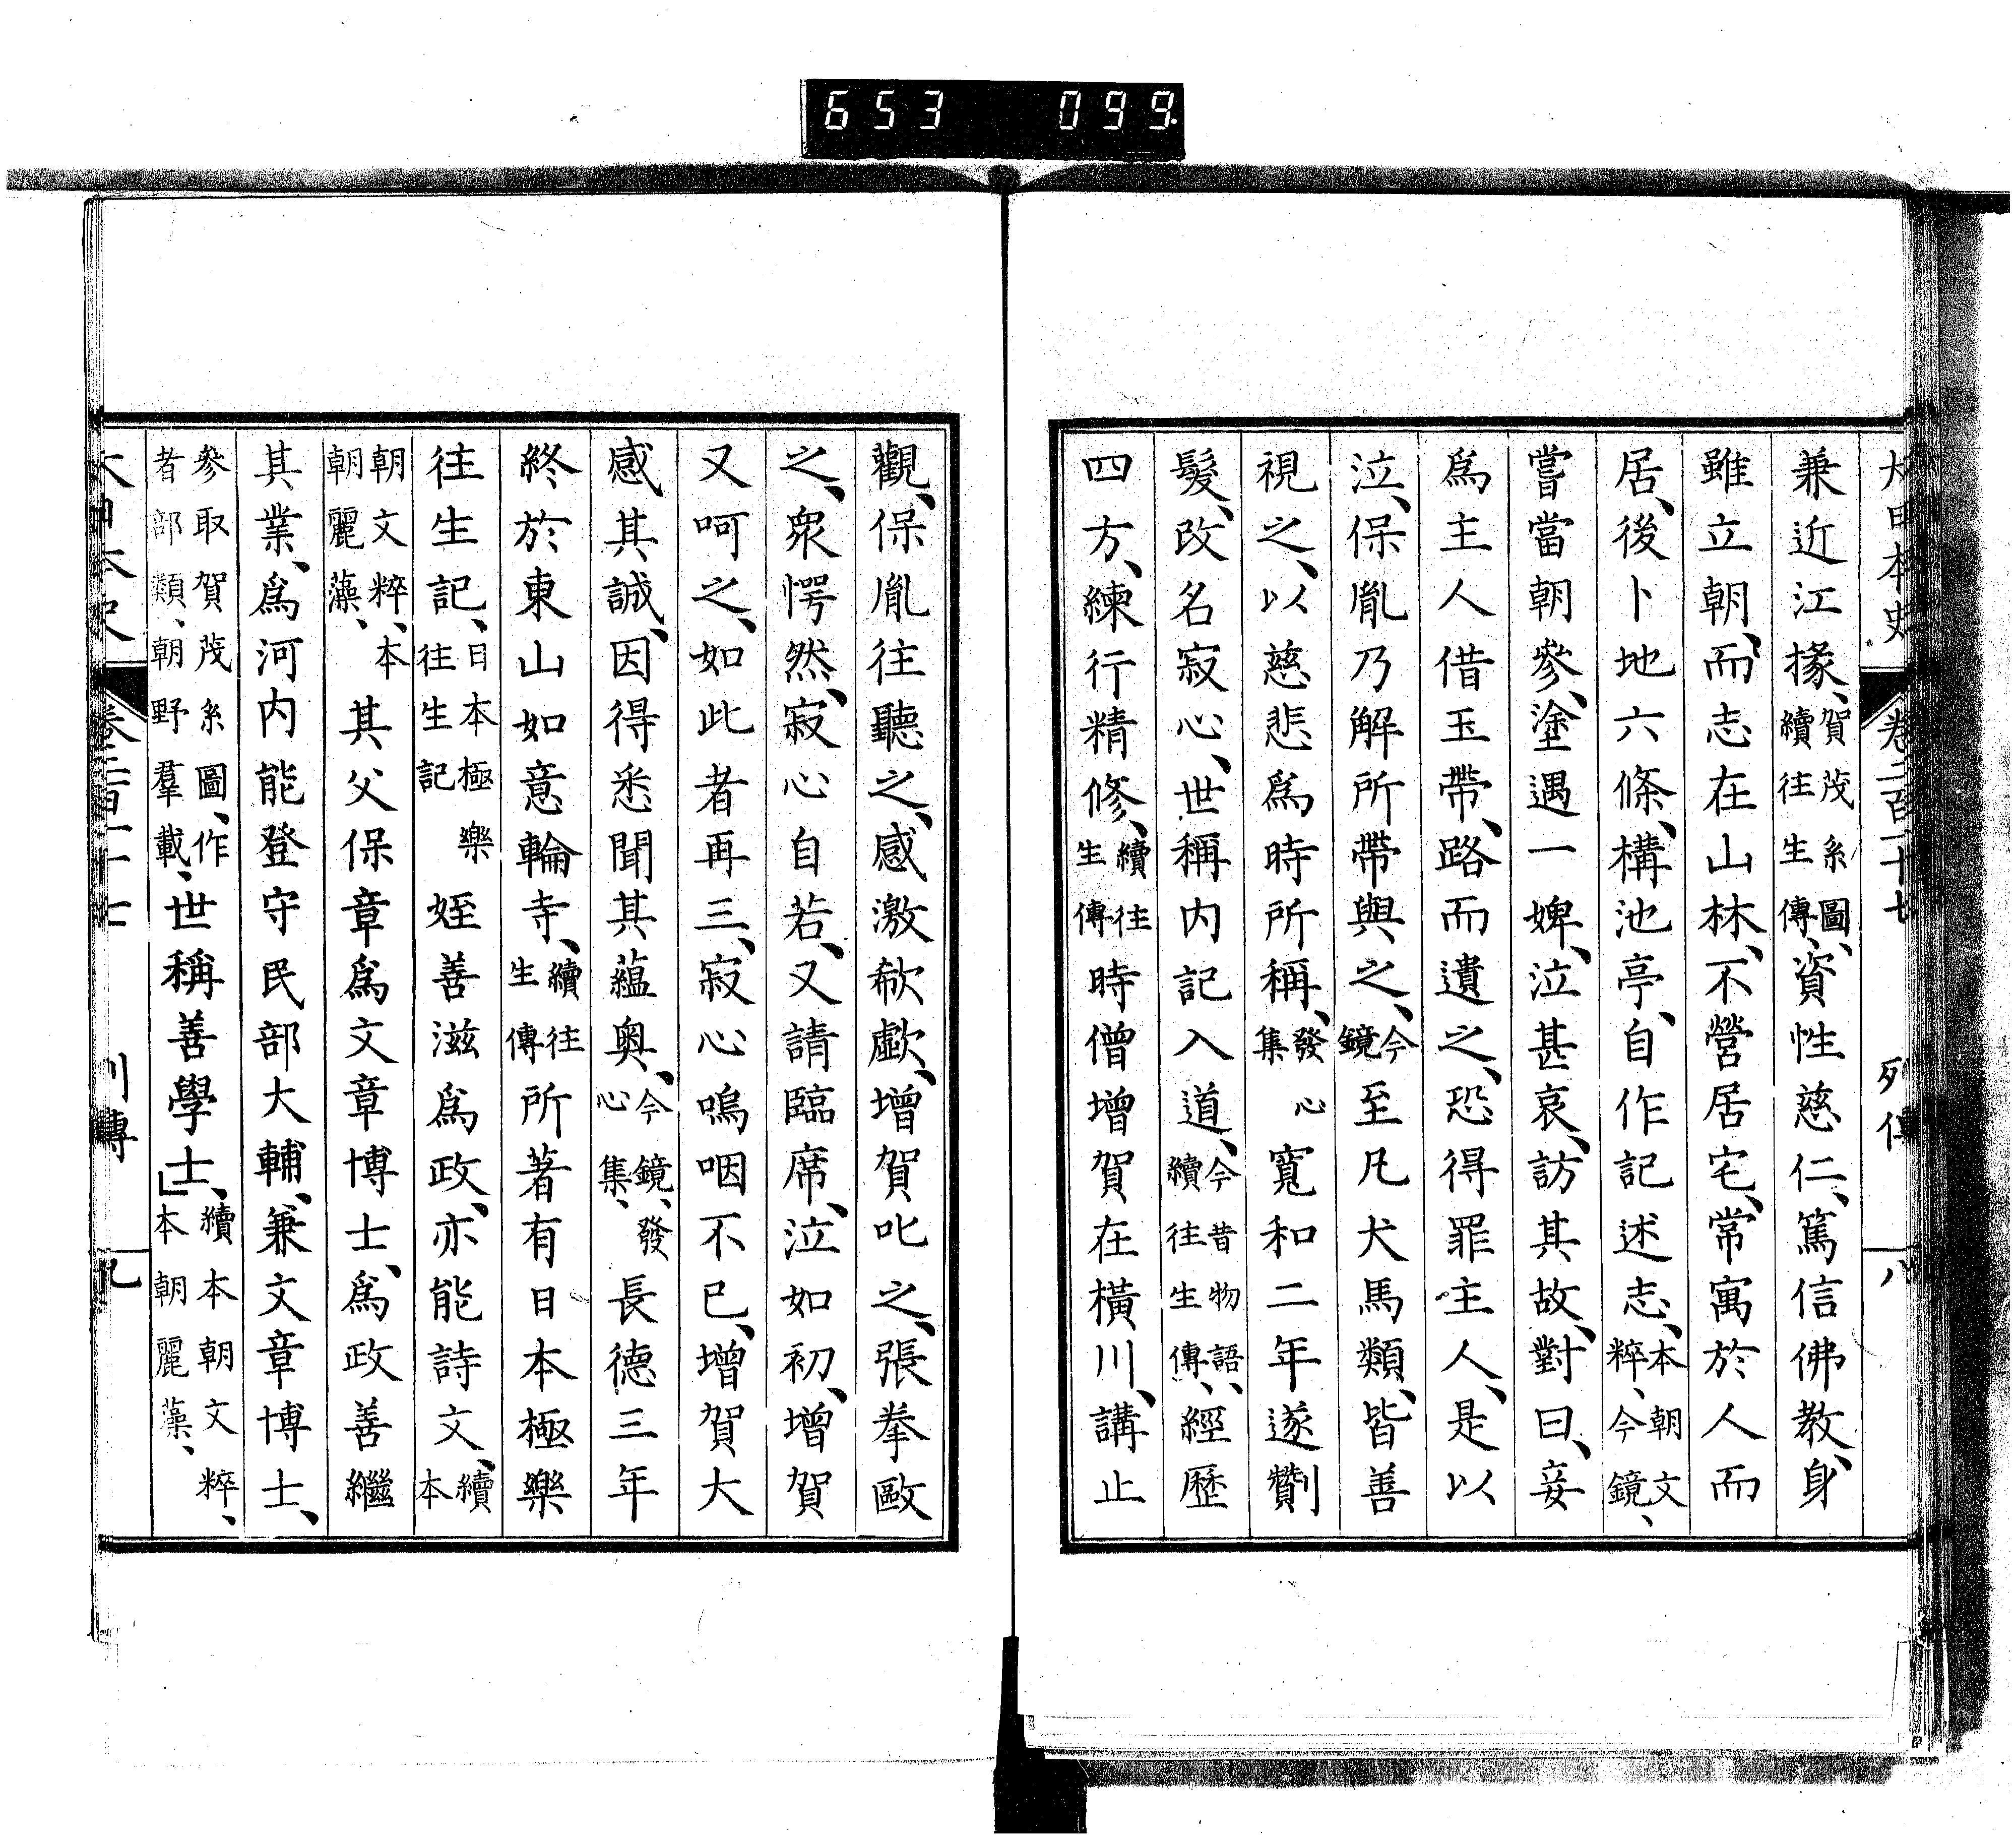 653 099
大日本史 卷二百一十七 列傳 八
兼近江掾、賀茂系圖、續往生傳、資性慈仁、篤信佛教、身
雖立朝、而志在山林、不營居宅、常寓於人而
居、後卜地六條、構池亭、自作記述志、本朝文粹、今鏡、
嘗當朝參、塗遇一婢、泣甚哀、訪其故、對曰、妾
爲主人借玉帶、路而遺之、恐得罪主人、是以
泣、保胤乃解所帶與之、今鏡至凡犬馬類、皆善
視之、以慈悲爲時所稱、發心集寬和二年遂剃
髮、改名寂心、世稱內記入道、今昔物語、續往生傳、經歷
四方、練行精修、續往生傳時僧增賀在橫川、講止
觀、保胤往聽之、感激欷歔、增賀叱之、張拳毆
之、衆愕然、寂心自若、又請臨席、泣如初、增賀
又呵之、如此者再三、寂心嗚咽不已、增賀大
感其誠、因得悉聞其蘊奧、今鏡、發心集、長德三年
終於東山如意輪寺、續往生傳所著有日本極樂
往生記、日本極樂往生記姪善滋爲政、亦能詩文、續本
朝文粹、本朝麗藻、其父保章爲文章博士、爲政善繼
其業、爲河內能登守民部大輔、兼文章博士、
參取賀茂系圖、作者部類、朝野羣載、世稱善學士、」續本朝文粹、本朝麗藻、
大日本史 卷二百一十七 列傳 九